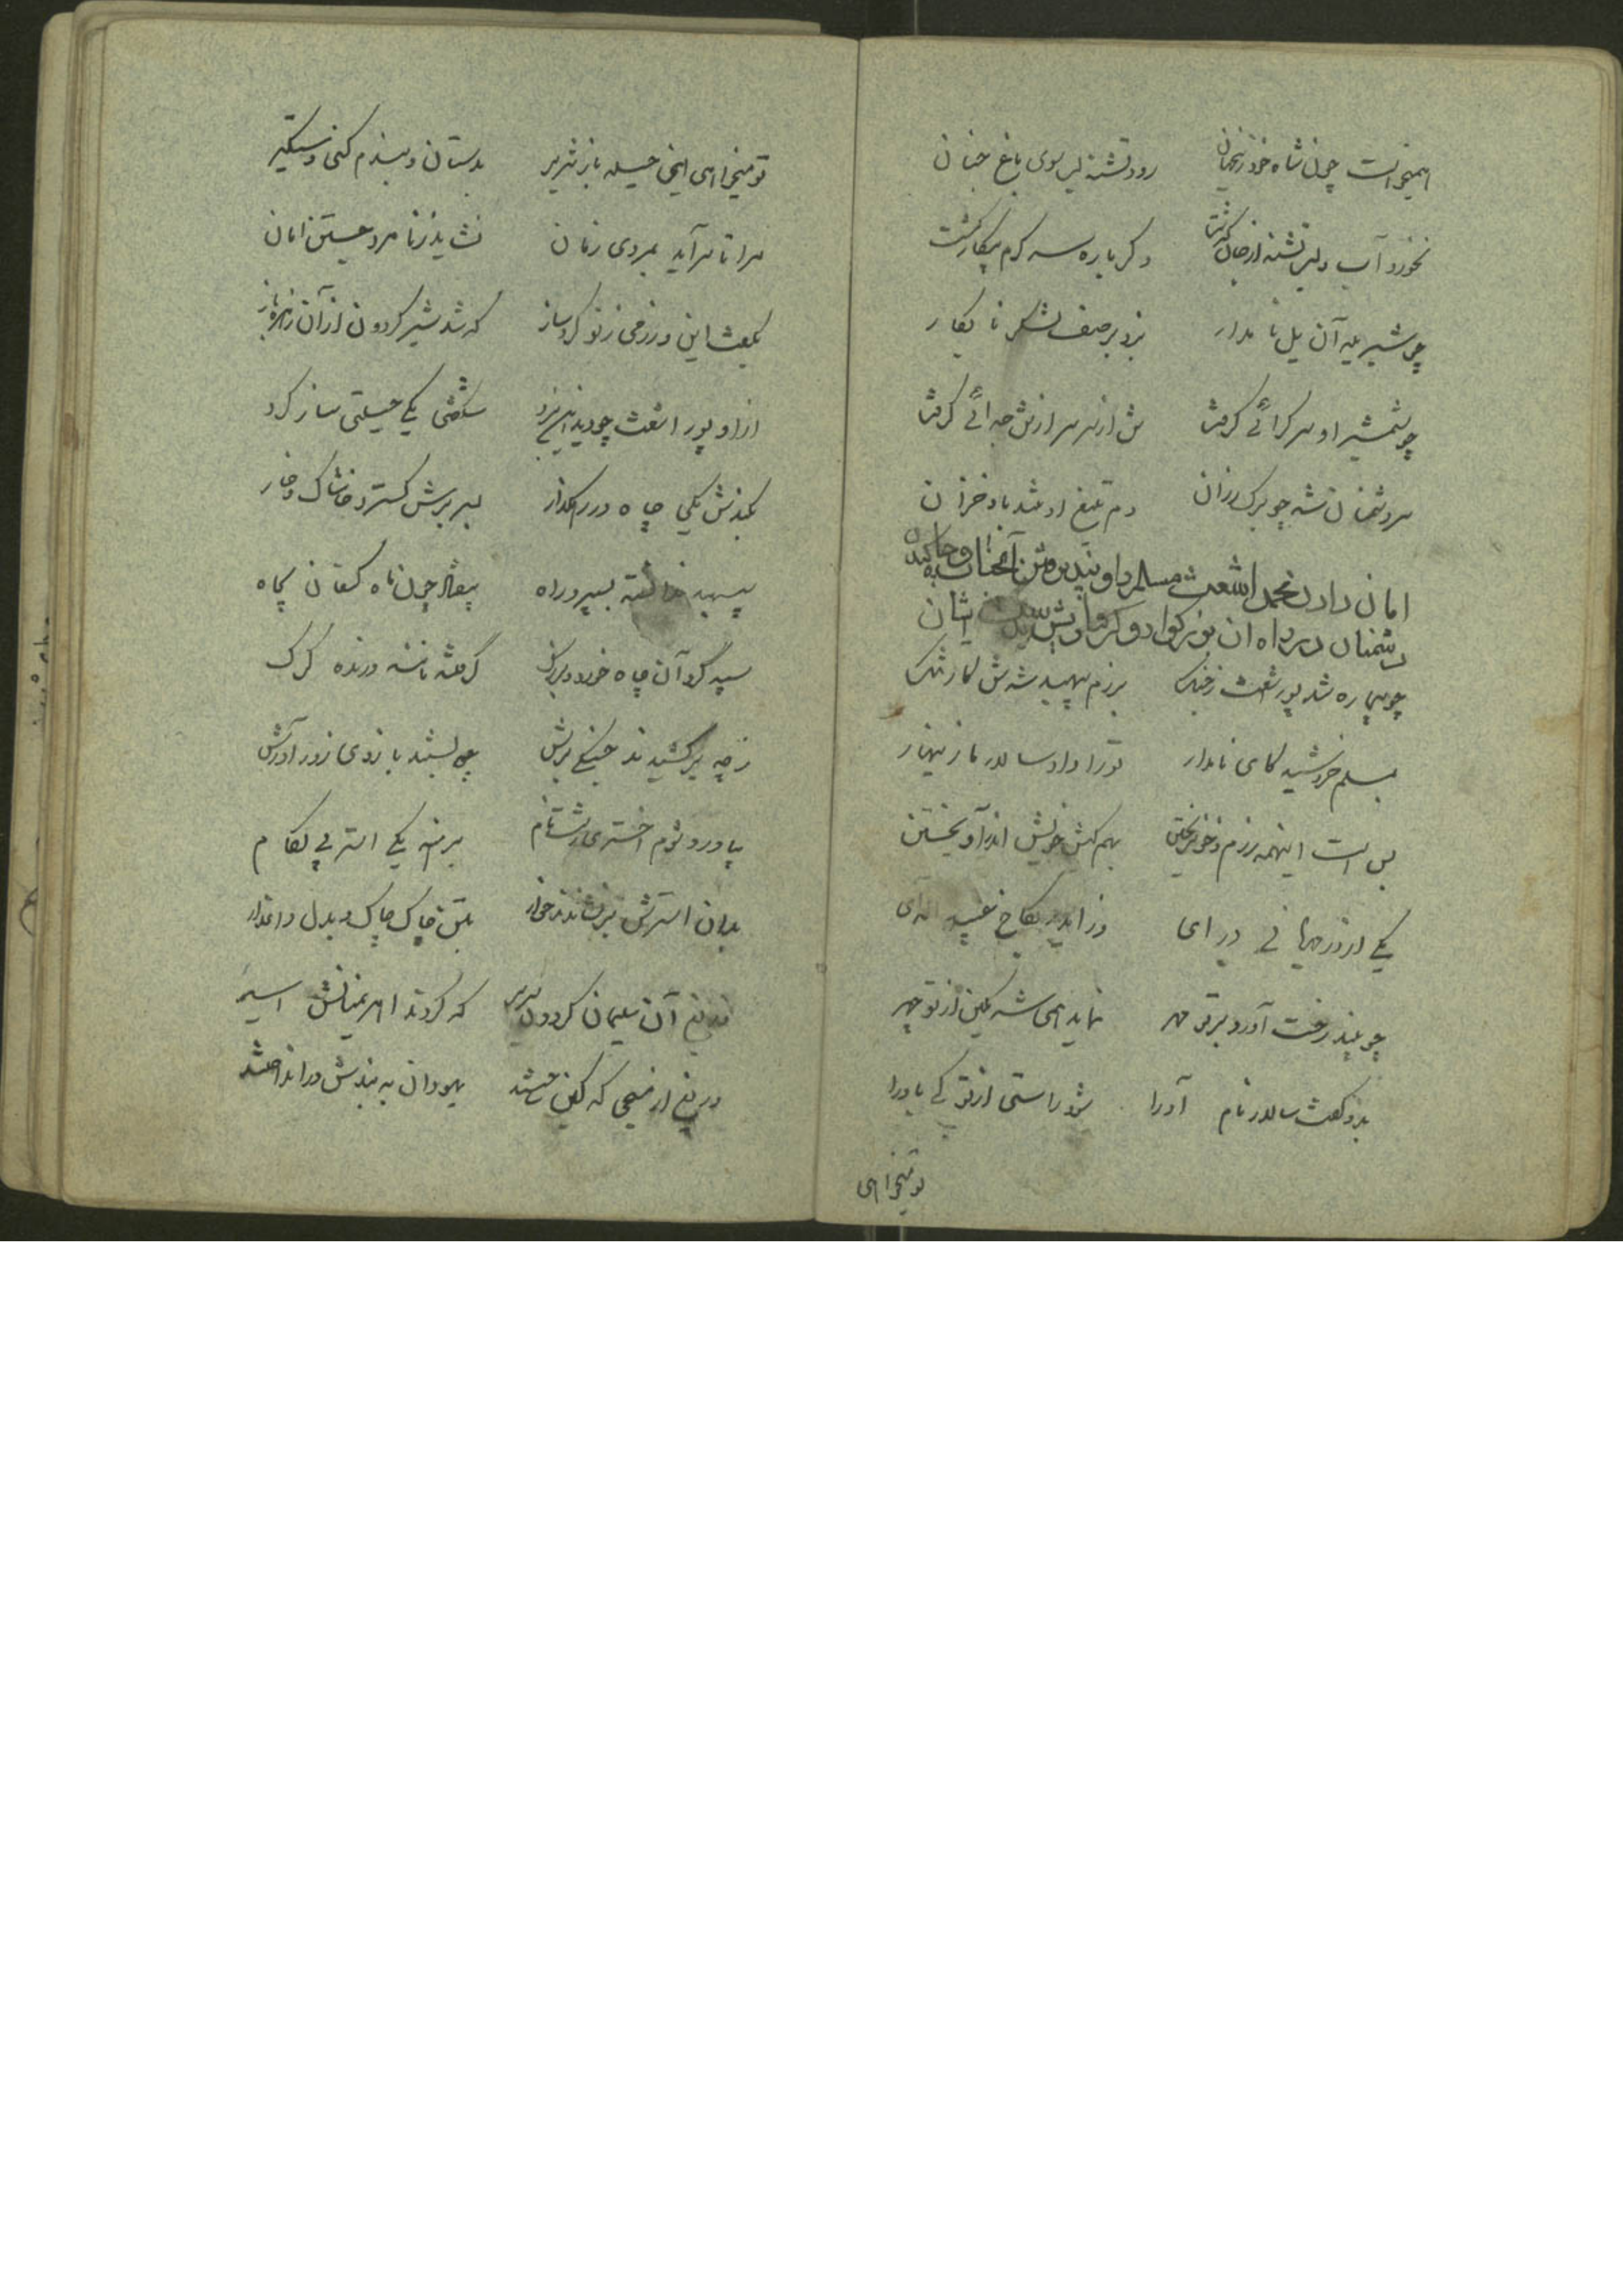 همیخواست چون شاه خود زنجهان رود تشنه لب سوی باغ جنان
نخورد آب و لب تشنه از جان گذشت دگر باره سرگرم پیکار گشت
چو شیر یله آن یل نامدار بزد بر صف لشکر نابکار
چو شمشیر او سر گرائی گرفت تن از سر سر از تن جدائی گرفت
سر دشمنان شد چو برگ رزان دم تیغ او شد باد خزان
امان دادن محمد اشعث مسلم را و نپذیرفتن آنجناب و چاه کندن
دشمنان در راه آن بزرگوار و گرفتار شدن ایشان
چو بیچاره شد پور اشعث ز جنگ برزم سپهبد شدش کار تنگ
بمسلم خروشید کای نامدار تو را داد سالار ما زینهار
بس است اینهمه رزم و خون ریختن بهم کیش خویش اندر آویختن
یکی از در مهربانی در آی وز ایدر بکاخ عبید
چو بیند رخت آورد بر تو مهر نماید همی شه یکین از تو چهر
بدو گفت سالار نام آورا شود راستی از تو کی باورا
تو میخواهی
تو میخواهی ای حیله باز شریر بدستان و بندم کنی دستگیر
مرا تا سر آید بمردی زمان نشاید ز نامرد جستن امان
بگفت این و رزمی ز نو کرد ساز که شد شیر گردون از آن زهره باز
از او پور اشعث چو دید آن نبرد شگفتی یکی حیلتی ساز کرد
بکندش یکی چاه در رهگذار بسر برش گسترد خاشاک و خار
سپهبد ندانسته بسپرد راه بیفتاد چون ماه کنعان بچاه
سپه گرد آن چاه خرد و بزرگ گرفتند مانند درنده گرگ
ز چه برکشیدند جنگی برش چو بستند بازوی زور آورش
بیاورد شوم اختری زشت نام برهنه یکی استر بی لگام
بدان استرش بر نشاندند خوار بتن چاک چاک و بدل داغدار
دریغ آن سلیمان گردون سریر که کردند اهریمنانش اسیر
دریغ از مسیحی که کین جستند یهودان به بندش در انداختند